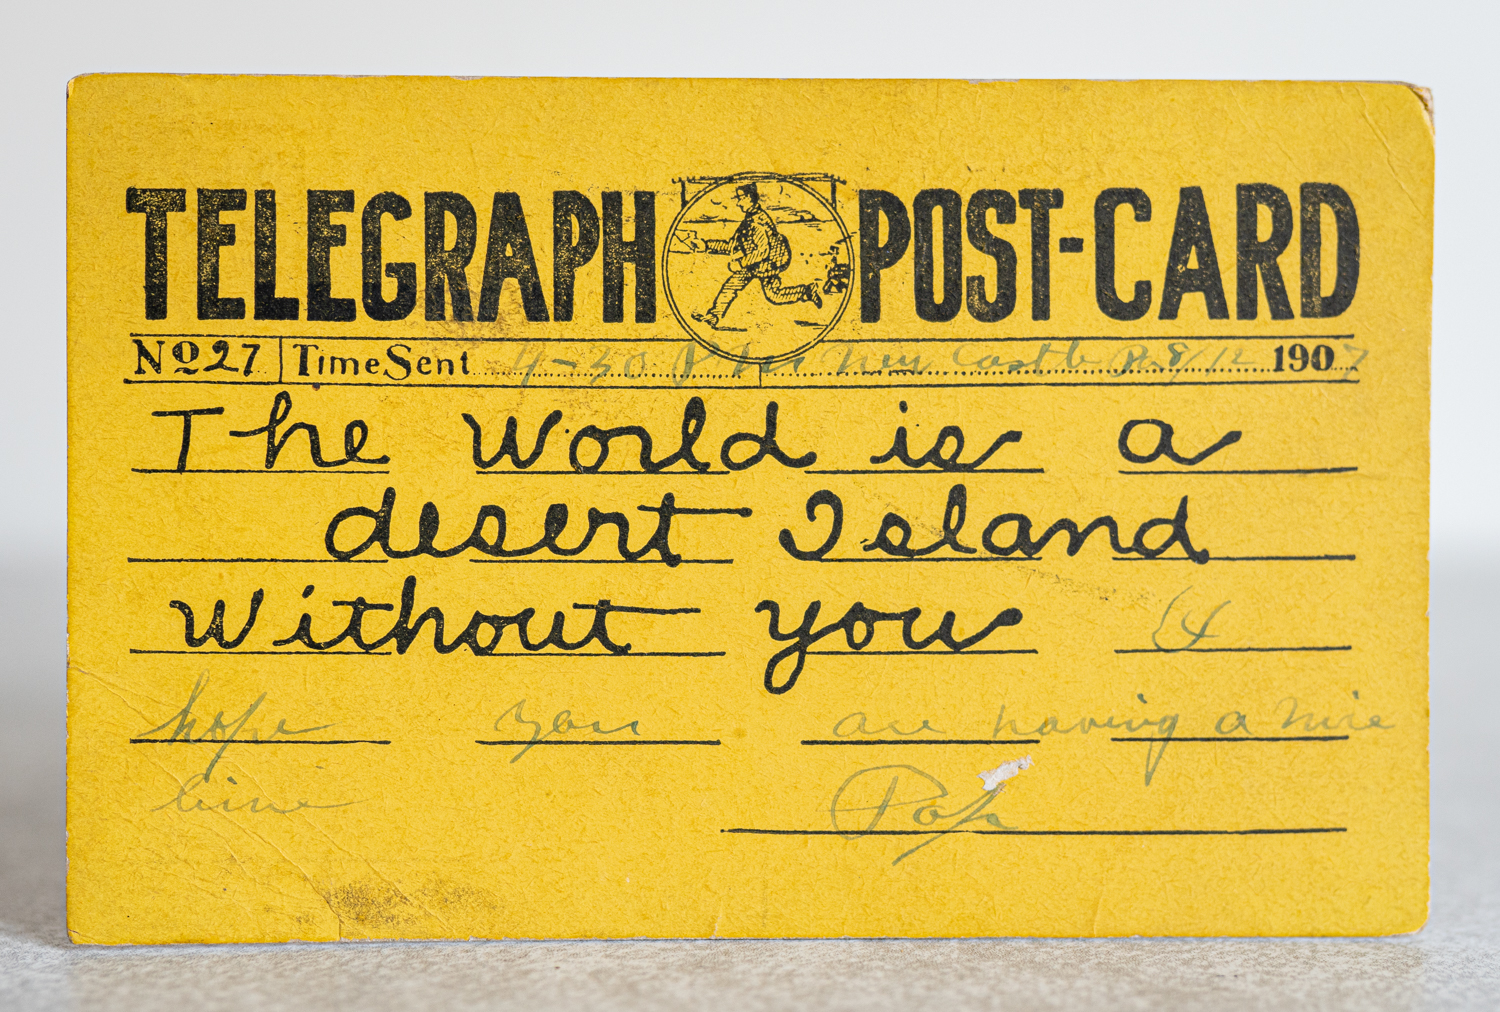 TELEGRAPH POST-CARD
No 27 Time Sent 4-30 PM New Castle Pa 8/12 1907
The World is a
desert Island
Without you
hope you are having a nice
time Pop